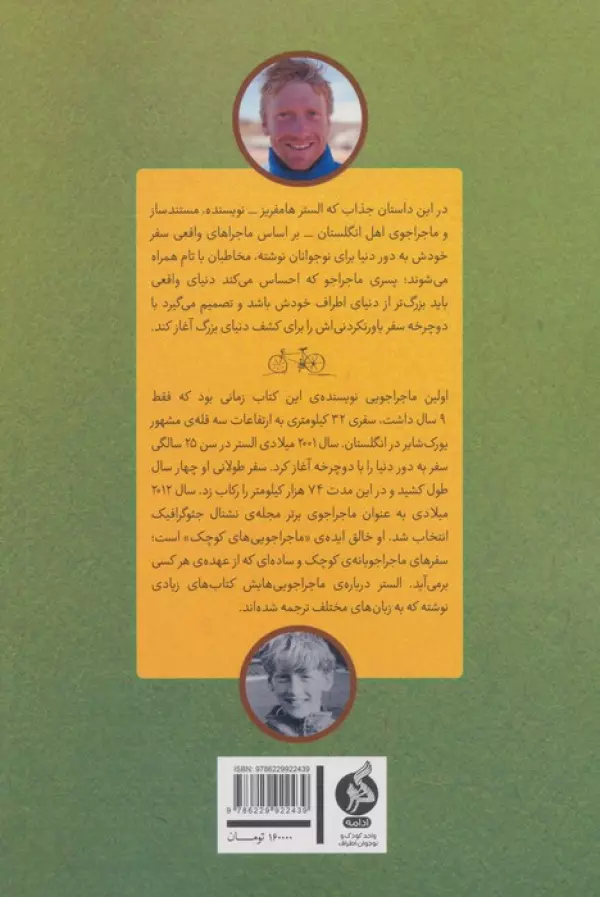 در این داستان جذاب که الستر هامفریز ــ نویسنده، مستندساز
و ماجراجوی اهل انگلستان ــ بر اساس ماجراهای واقعی سفر
خودش به دور دنیا برای نوجوانان نوشته، مخاطبان با تام همراه
می‌شوند؛ پسری ماجراجو که احساس می‌کند دنیای واقعی
باید بزرگ‌تر از دنیای اطراف خودش باشد و تصمیم می‌گیرد با
دوچرخه سفر باورنکردنی‌اش را برای کشف دنیای بزرگ آغاز کند.
اولین ماجراجویی نویسنده‌ی این کتاب زمانی بود که فقط
۹ سال داشت، سفری ۳۲ کیلومتری به ارتفاعات سه قله‌ی مشهور
یورک‌شایر در انگلستان. سال ۲۰۰۱ میلادی الستر در سن ۲۵ سالگی
سفر به دور دنیا را با دوچرخه آغاز کرد. سفر طولانی او چهار سال
طول کشید و در این مدت ۷۴ هزار کیلومتر را رکاب زد. سال ۲۰۱۲
میلادی به عنوان ماجراجوی برتر مجله‌ی نشنال جئوگرافیک
انتخاب شد. او خالق ایده‌ی «ماجراجویی‌های کوچک» است؛
سفرهای ماجراجویانه‌ی کوچک و ساده‌ای که از عهده‌ی هر کسی
برمی‌آید. الستر درباره‌ی ماجراجویی‌هایش کتاب‌های زیادی
نوشته که به زبان‌های مختلف ترجمه شده‌اند.
ISBN: 9786229922439
9 786229 922439
۱۶۰۰۰۰ تومان
ادامه
واحد کودک و
نوجوان اطراف